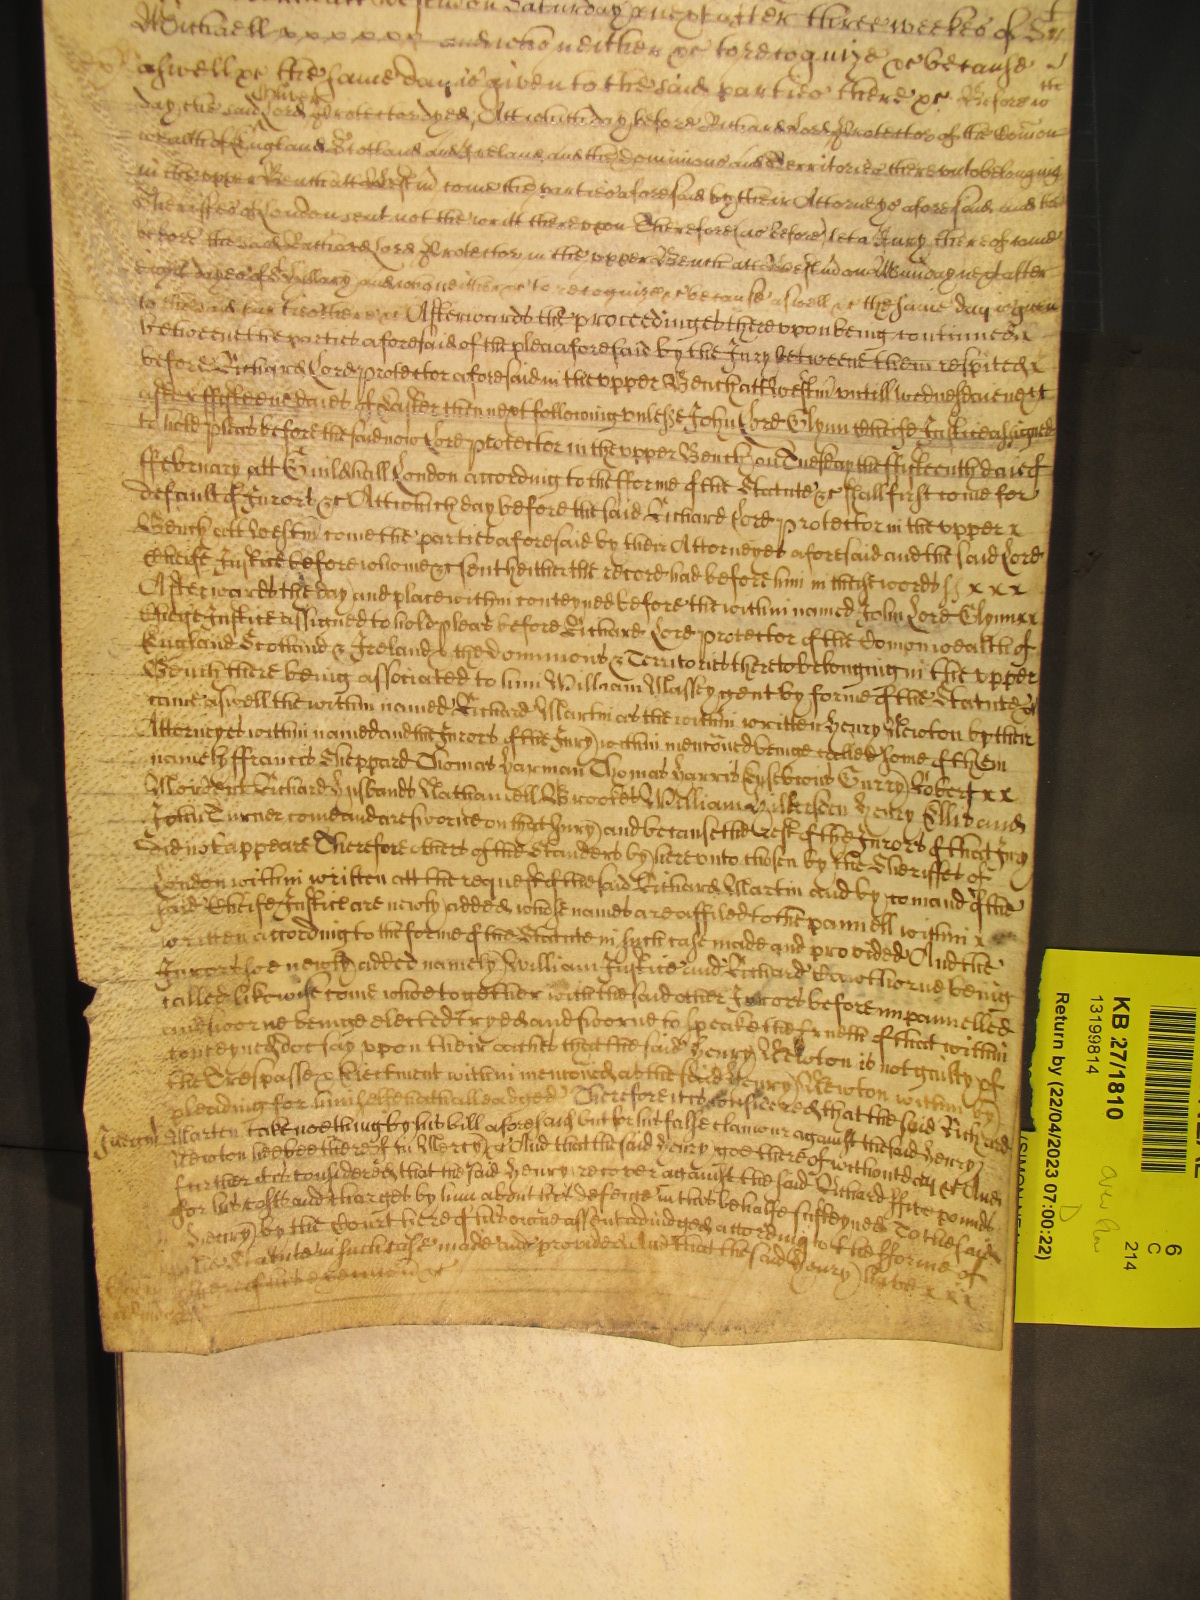 Saturday next after three weekes of St
Michaell x x x x x and whoe neither &c to recognize &c because
aswell &c the same day is given to the said parties there &c Before wch
Oliver
day the said Lord Protector dyed, Att which day before Richard Lord Protector of the Comon
wealth of England Scotland and Ireland and the Dominions and Territories thereunto belonging
in the upper Bench att Westm come the parties aforesaid by their Attorneys aforesaid and the
Sheriffes of London sent not the writt thereupon Therefore (as before) let a Jury thereof come
before the said Richard Lord Protector in the upper Bench att Westm on Munday next after
eight dayes of Hillary and whoe neither &c to recognize &c because aswell &c the same day is given
to the said parties there &c Afterwards the proceedinges thereupon being continued x
betweene the parties aforesaid of the plea aforesaid by the Jury betweene them respited x
before Richard Lord Protector aforesaid in the upper Bench att Westm untill wednesday next
after fifteene daies of Easter then next following unlesse John Lord Glynn Cheife Justice assigned
to hold pleas before the said now Lord Protector in the upper Bench on Tuesday the fifteenth day of
ffebruary att Guildhall London according to the fforme of the Statute &c shall first come for
default of Jurors &c Att which day before the said Richard Lord Protector in the upper x
Bench att Westm come the parties aforesaid by their Attorneyes aforesaid and the said Lord
Cheife Justice before whome &c sent heither the record had before him in these words ss x x x
Afterwards the day and place within conteyned before the within named John Lord Glynn x x
Cheife Justice assigned to hold pleas before Richard Lord Protector of the Comonwealth of
England Scotland & Ireland & the dominions & Territories thereto belonging in the upper
Bench there being associated to him William Massey gent by forme of the Statute &c
came aswell the within named Richard Martin as the within written Henry Newton by their
Attorneyes within named and the Jurors of the Jury within mentioned being called some of them
namely ffrancis Sheppard Thomas Harman Thomas Harris Eusebious Curry Robert x x
Richard Husbands Nathaniell Brookes William Wilkerson Henry Ellis and
John Turner come and are sworne on that Jury and because the Rest of the Jurors of that Jury
Did not appeare Therefore others of the Standers by hereunto chosen by the Sheriffes of
London within written att the request of the said Richard Martin and by comand of the
said Cheife Justice are newly added whose names are affiled to the pannell within x
written according to the forme of the Statute in such case made and provided And the
Jurors soe newly added namely William Justice and Richard Cawthorne being
called likewise come whoe together with the said other Jurors before impannelled
and sworne beinge elected tryed and sworne to speake the truth of that within
conteyned doe say upon their oathes that the said Henry Newton is not guilty of
the Trespasse & Eiectment within mentioned as the said Henry Newton within by
pleading for himselfe hath alleadged Therefore it is considered that the said Richard
Marten take nothing by his bill aforesaid but for his false clamour against the said Henry
Newton hee bee thereof in Mercy &c And that the said Henry goe thereof without day &c And
further it is considered that the said Henry recover against the said Richard ffive pounds
for his costs and charges by him about his defence in that behalfe susteyned To the said
Henry by the Court here of his owne assent adiudged according to the fforme of
the Statute in such case made and provided And that the said Henry have x x x
thereof his execution &c
KB 27/1810
13199814
Return by (22/04/2023 07:00:22)
6
C
214